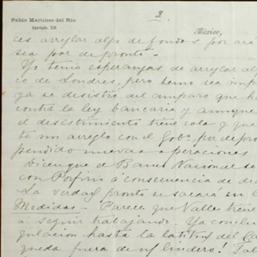 Pablo Martinez del Rio
3.
México,
ces arreglar algo de fondos por ara
sea por de pronto.
Yo tenia esperanzas de arreglar al
co de Londres, pero como sea imp
ya se desistió del amparo que h
contra la ley bancaria y aunque
el desistimiento tiene cola y que
te mi arreglo con el Gob.º por de pro
pendido nuevas operaciones.
Dicen que el Banco Nacional se
con Porfirio á consecuencia de
La verdad pronto se sacará en
Medidas. Parece que Valle tiene
á seguir trabajando. Ya con
gulacion hasta la latitud del
queda fuera de mi lindero!